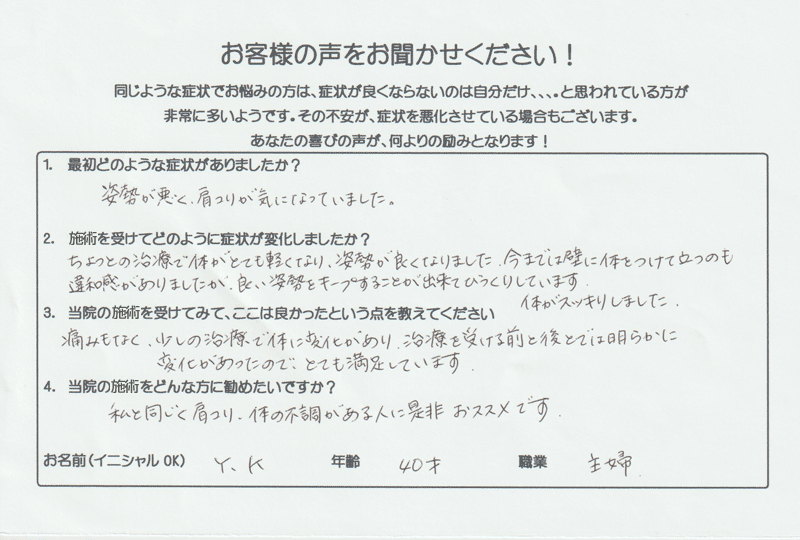 お客様の声をお聞かせください！
同じような症状でお悩みの方は、症状が良くならないのは自分だけ、、、。と思われている方が
非常に多いようです。その不安が、症状を悪化させている場合もございます。
あなたの喜びの声が、何よりの励みとなります！
1. 最初どのような症状がありましたか？
姿勢が悪く、肩こりが気になっていました。
2. 施術を受けてどのように症状が変化しましたか？
ちょっとの治療で体がとても軽くなり、姿勢が良くなりました。今までは壁に体をつけて立つのも
違和感がありましたが、良い姿勢をキープすることが出来てびっくりしています。
体がスッキリしました。
3. 当院の施術を受けてみて、ここは良かったという点を教えてください
痛みもなく、少しの治療で体に変化があり、治療を受ける前と後とでは明らかに
変化があったので、とても満足しています。
4. 当院の施術をどんな方に勧めたいですか？
私と同じく肩こり、体の不調がある人に是非おススメです。
お名前（イニシャルOK） Y、K 年齢 40才 職業 主婦